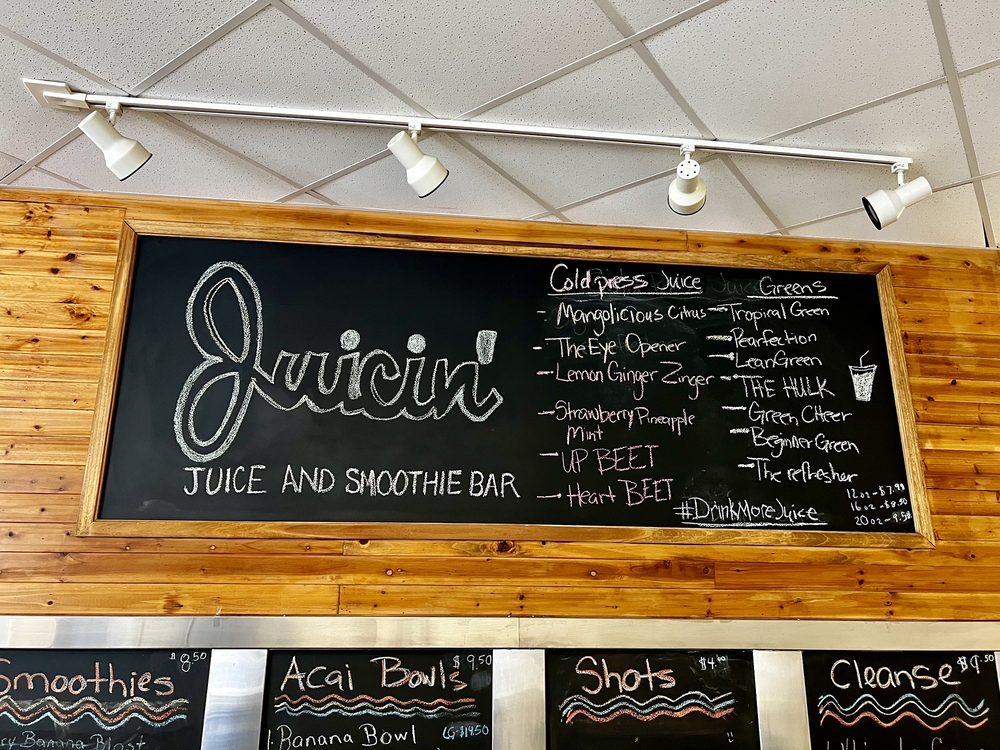 Juicin'
JUICE AND SMOOTHIE BAR
Cold press Juice
- Mangolicious Citrus
- The Eye Opener
- Lemon Ginger Zinger
- Strawberry Pineapple
Mint
- UP BEET
- Heart BEET
Greens
- Tropical Green
- Pearfection
- Lean Green
- THE HULK
- Green Cheer
- Beginner Green
- The refresher
#DrinkMoreJuice
12oz - $7.99
16oz - $8.50
20oz - 9.50
Smoothies
$8.50
Banana Blast
Acai Bowls
$9.50
1. Banana Bowl
Shots
Cleanse